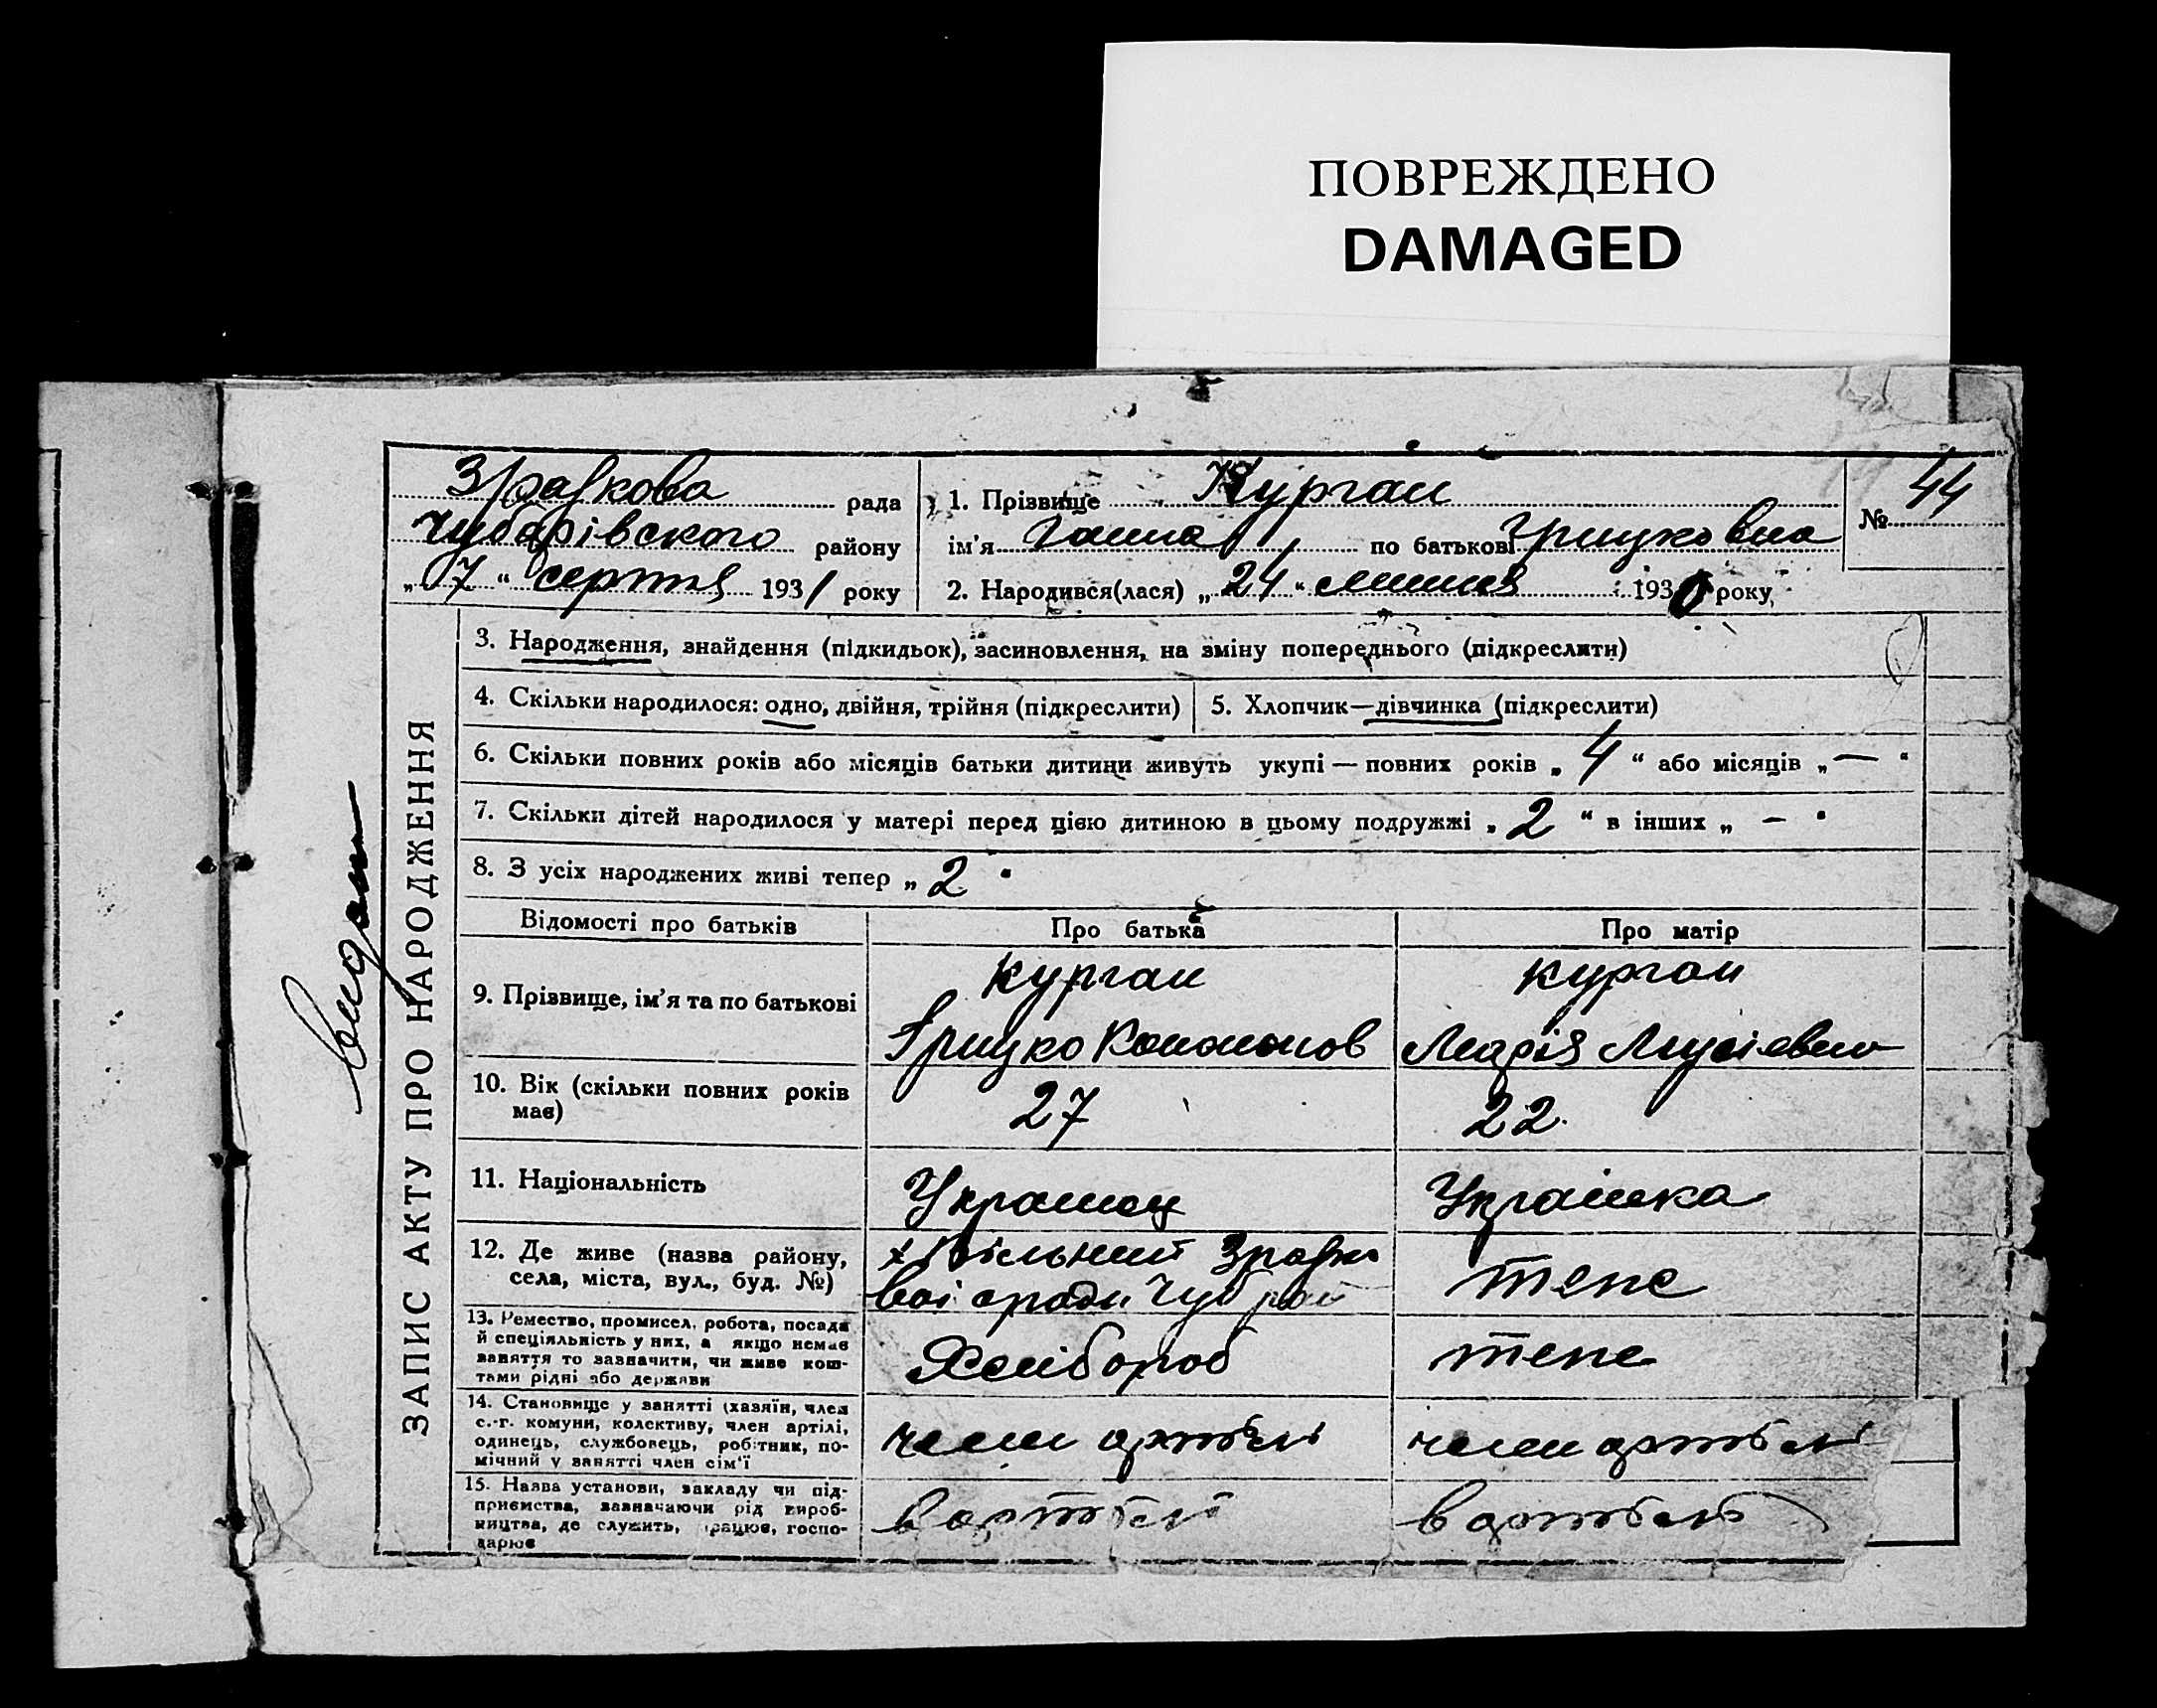 ПОВРЕЖДЕНО
DAMAGED
Зразкова рада
Чубарівського району
„ 7 “ серпня 1931 року
1. Прізвище Курган
ім’я Ганна по батькові Грицковна
2. Народився(лася) „ 24 “ липня 1930 року
№ 44
видан
ЗАПИС АКТУ ПРО НАРОДЖЕННЯ
3. Народження, знайдення (підкидьок), засиновлення, на зміну попереднього (підкреслити)
4. Скільки народилося: одно, двійня, трійня (підкреслити)
5. Хлопчик—дівчинка (підкреслити)
6. Скільки повних років або місяців батьки дитини живуть укупі — повних років „ 4 “ або місяців „ — “
7. Скільки дітей народилося у матері перед цією дитиною в цьому подружжі „ 2 “ в інших „ — “
8. З усіх народжених живі тепер „ 2 “
Відомості про батьків
Про батька
Про матір
9. Прізвище, ім’я та по батькові
Курган
Грицко Кононов
Курган
Марія Мусіевна
10. Вік (скільки повних років
має)
27
22
11. Національність
Украінец
Украінка
12. Де живе (назва району,
села, міста, вул., буд. №)
х Вільний
воі сради Чуб рай
тепе
13. Ремество, промисел, робота, посада
й спеціяльність у них, а якщо немає
заняття то зазначити, чи живе кош-
тами рідні або держави
Хлібороб
тепе
14. Становище у занятті (хазяїн, член
с.-г. комуни, колективу, член артілі,
одинець, службовець, робітник, по-
мічний у занятті член сім’ї
член артілі
член артілі
15. Назва установи, закладу чи під-
приємства, зазначаючи рід вироб-
ництва, де служить, працює, госпо-
дарює
в артілі
в артілі